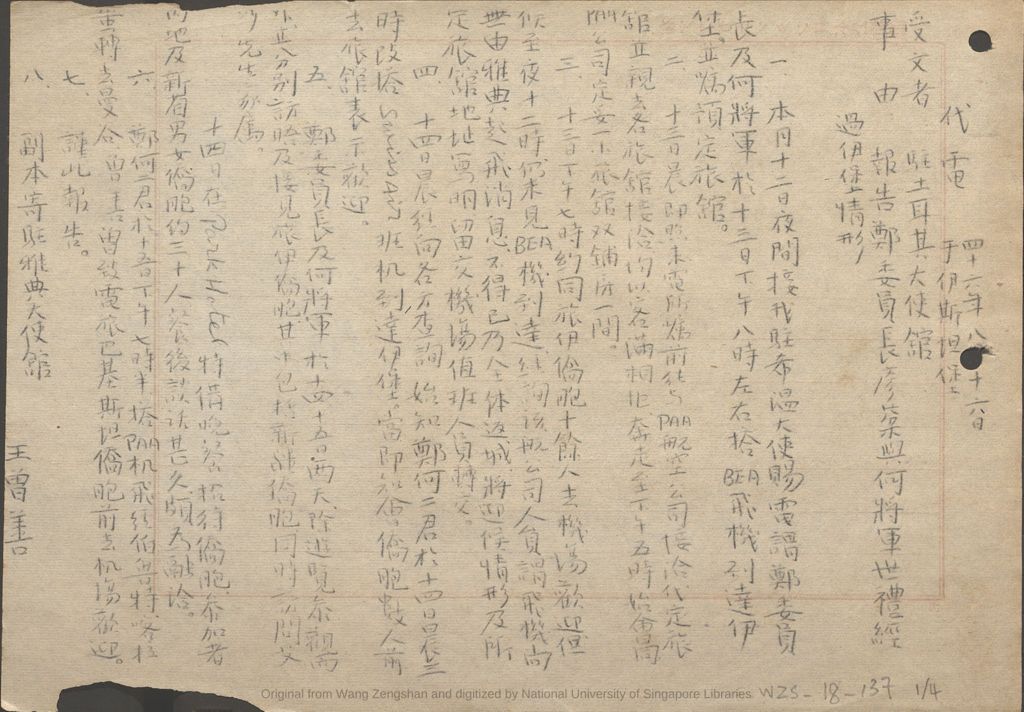 代電
四十六年八月十六日
于伊斯坦堡
受文者 駐土耳其大使館
事由 報告鄭委員長彥棻與何將軍世禮經
過伊堡情形
一 本月十二日夜間接我駐希溫大使賜電謂鄭委員
長及何將軍於十三日下午八時左右搭BEA飛機到達伊
堡並囑預定旅館。
二、十三日晨即照來電所囑前往與PAA航空公司接洽代定旅
館並親去各旅館接洽均以客滿相拒奔走至下午五時始
公司定妥一小旅館双鋪房一間。
三、十三日下午七時約同旅伊僑胞十餘人去機場歡迎但
候至夜十二時仍未見BEA機到達經詢該航公司人員謂飛機尚
無由雅典起飛消息不得已乃全体返城將迎候情形及所
定旅館地址寫明留交機場值班人員轉交。
四、十四日晨經向各方查詢始知鄭何二君於十四日晨三
時改搭 班机到達伊堡。當即知會僑胞數人前
去旅館表示歡迎。
五、鄭委員長及何將軍於十四十五日兩天除遊覽參觀而
外並分別訪晤及接見旅伊僑胞其中包括新疆僑胞同時訪問艾
沙先生一家屬。
十四日在Park Hotel特備晚餐招待僑胞參加者
內地及新省男女僑胞約三十人餐後談話甚久頗為融洽。
六、鄭何二君於十五日下午七時半搭PAA机飛經伯魯特喀拉
蚩轉去曼谷曾善曾致電旅巴基斯坦僑胞前去机場歡迎。
七、謹此報告。
八、副本寄駐雅典大使館
王曾善
Original from Wang Zengshan and digitized by National University of Singapore Libraries. WZS-18-137 1/4